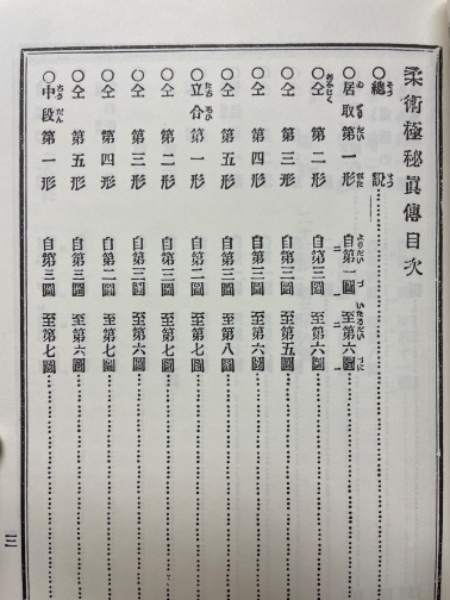 柔術極秘眞傳目次
〇總說
〇居取第一形 自第一圖 至第六圖
〇仝 第二形 自第三圖 至第六圖
〇仝 第三形 自第二圖 至第五圖
〇仝 第四形 自第三圖 至第六圖
〇仝 第五形 自第三圖 至第八圖
〇立合第一形 自第二圖 至第七圖
〇仝 第二形 自第三圖 至第七圖
〇仝 第三形 自第三圖 至第六圖
〇仝 第四形 自第二圖 至第七圖
〇仝 第五形 自第三圖 至第六圖
〇中段第一形 自第三圖 至第七圖
三